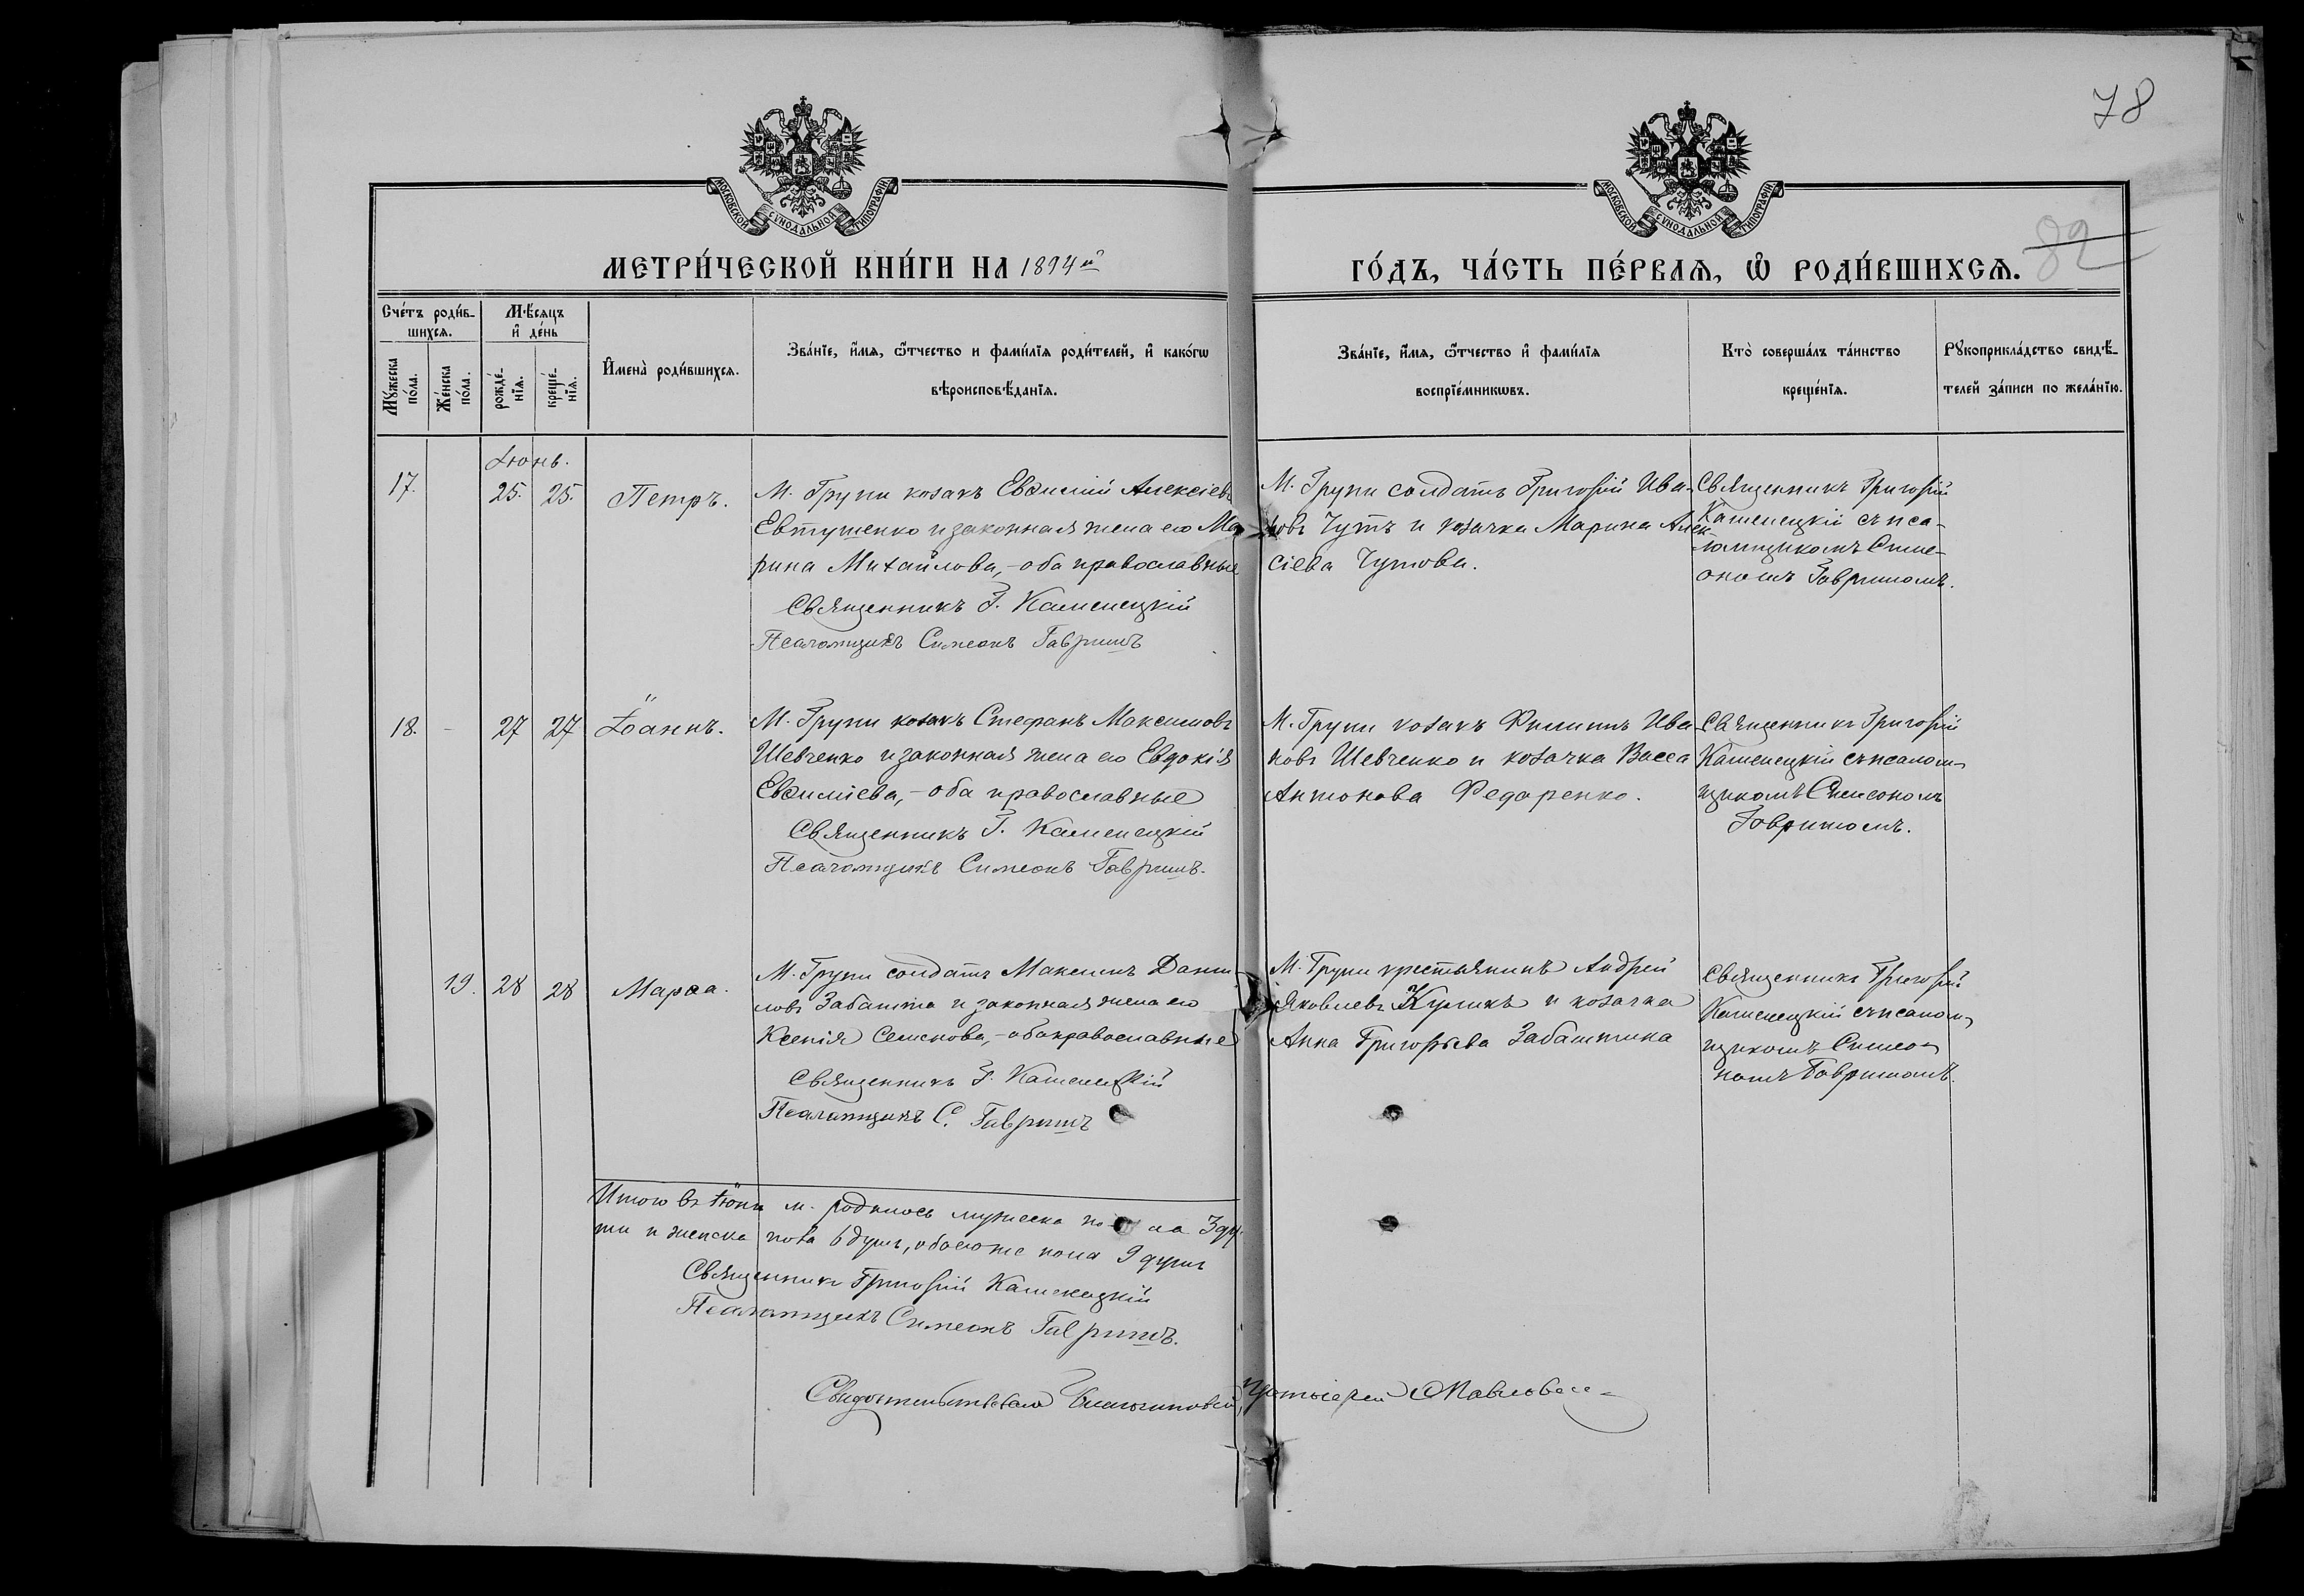 78
82
МОСКОВСКОЙ СѴНОДАЛЬНОЙ ТИПОГРАФІИ
МОСКОВСКОЙ СѴНОДАЛЬНОЙ ТИПОГРАФІИ
МЕТРИ́ЧЕСКОЙ КНИ́ГИ НА 1894й
ГО́ДЪ, ЧА́СТЬ ПЕ́РВАѦ, Ѡ҆ РОДИ́ВШИХСѦ.
Сче́тъ роди́в-
шихсѧ.
Мѣ́сѧцъ
и҆ де́нь
Мꙋ́жеска
по́ла.
Же́нска
по́ла.
рожде́-
нїѧ.
креще́-
нїѧ.
И҆мена̀ роди́вшихсѧ.
Зва́нїе, и҆́мѧ, ѻ҆́тчество и фами́лїѧ роди́телей, и҆ како́гѡ
вѣроисповѣ́данїѧ.
Зва́нїе, и҆́мѧ, ѻ҆́тчество и҆ фами́лїѧ
воспрїе́мникѡвъ.
Кто̀ соверша́лъ та́инство
креще́нїѧ.
Рꙋкоприкла́дство свидѣ́-
телей за́писи по жела́нїю.
Іюнь.
17. 25. 25. Петръ.
М. Груни козакъ Евѳимій Алексіевъ
Евтушенко и законная жена его Ма
рина Михайлова,-оба православные
Священникъ Г. Каменецкій
Псаломщикъ Симеонъ Гавришъ
М. Груни солдатъ Григорій Ива-
новъ Чутъ и козачка Марина Алек-
сіева Чутова.
Священникъ Григорій
Каменецкій съ пса-
ломщикомъ Симе-
ономъ Гавришомъ.
18. - 27 27 Іоаннъ.
М. Груни козакъ Стефанъ Максимовъ
Шевченко и законная жена его Евдокія
Евѳиміева,-оба православные
Священникъ Г. Каменецкій
Псаломщикъ Симеонъ Гавришъ.
М. Груни козакъ Филиппъ Ива-
новъ Шевченко и козачка Васса
Антонова Федоренко.
Священникъ Григорій
Каменецкій съ псалом-
щикомъ Симеономъ
Гавришомъ.
19. 28 28 Марѳа.
М. Груни солдатъ Максимъ Дани-
ловъ Забашта и законная жена его
Ксенія Семенова,-оба православные
Священникъ Г. Каменецкій
Псаломщикъ С. Гавришъ
М. Груни крестьянинъ Андрей
Яковлевъ Куликъ и козачка
Анна Григорьева Забаштина
Священникъ Григорій
Каменецкій съ псалом-
щикомъ Симео-
номъ Гавришомъ.
Итого въ Іюнѣ м. родилось мужеска по ла 3 ду-
ши и женска пола 6 душъ, обоего же пола 9 душъ
Священникъ Григорій Каменецкій
Псаломщикъ Симеонъ Гавришъ.
Свидѣтельствовалъ Благочинный, Протоіерей